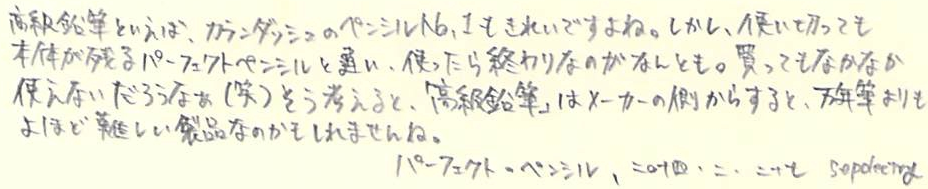 高級鉛筆といえば、カランダッシュのペンシルNo.1もきれいですよね。しかし、使い切っても
本体が残るパーフェクトペンシルと違い、使ったら終わりなのがなんとも。買ってもなかなか
使えないだろうなぁ(笑)そう考えると、「高級鉛筆」はメーカーの側からすると、万年筆よりも
よほど難しい製品なのかもしれませんね。
パーフェクト・ペンシル、